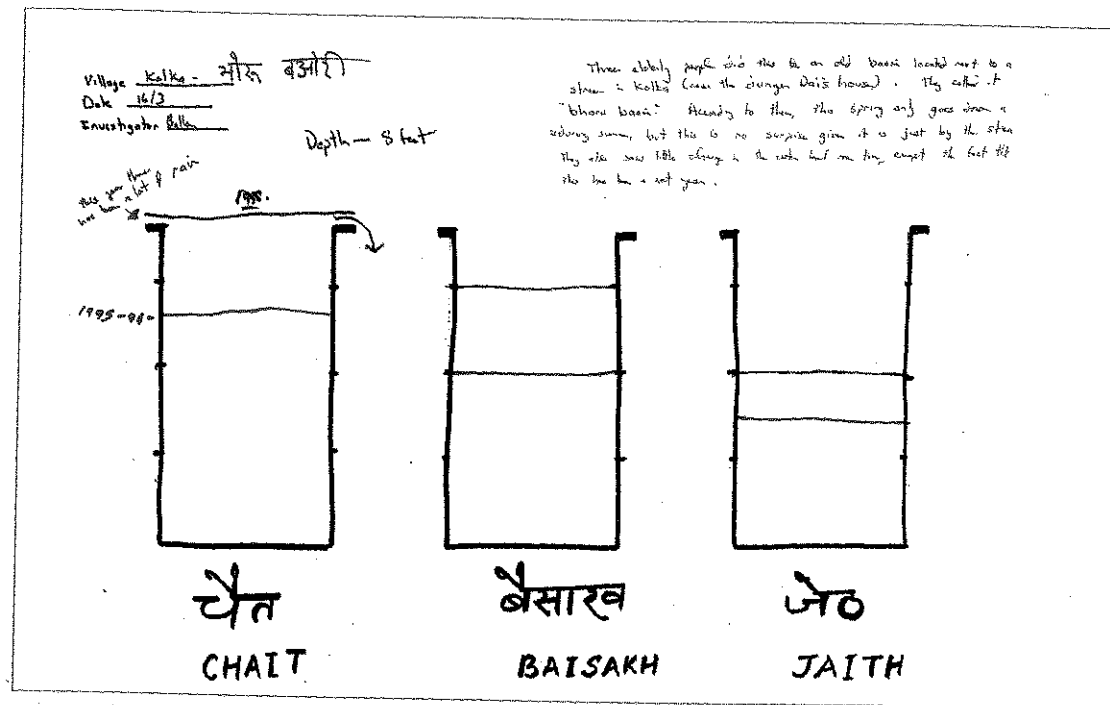 Village Kolka - भोरू बओरी
Date 16/3
Investigator
Depth — 8 feet
Three elderly people did this for an old baori located next to a
stream in Kolka (near the younger Dai's house). They called it
"bhoru baori." According to them, this spring only goes down a
during summer, but this is no surprise given it is just by the
They also saw little change in the water level over time, except the fact
this has been a wet year.
this year there
has been a lot of rain
1998.
1995-94-
चैत
CHAIT
बैसाख
BAISAKH
जेठ
JAITH